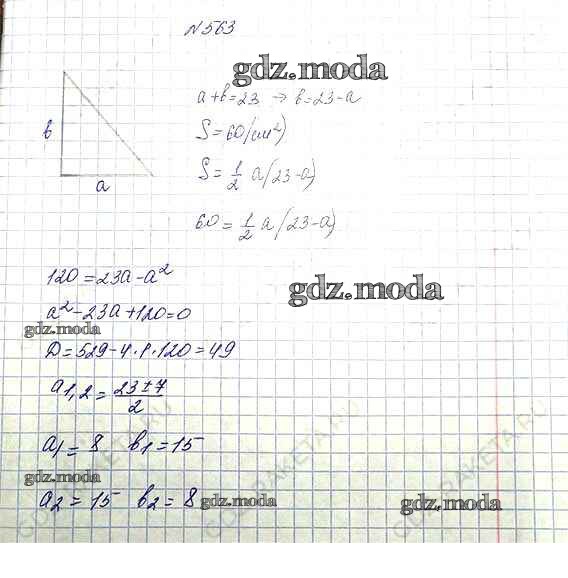 N563
gdz.moda
a+в=23 → в=23-a
S=60(см²)
S=1/2 a(23-a)
в
a
60=1/2 a(23-a)
120=23a-a²
gdz.moda
a²-23a+120=0
gdz.moda
D=529-4·1·120=49
a1,2=23±7/2
a1=8 в1=15
gdz.moda
a2=15 в2=8
gdz.moda
gdz.moda
GDZRAKETA.RU
GDZRAKETA.RU